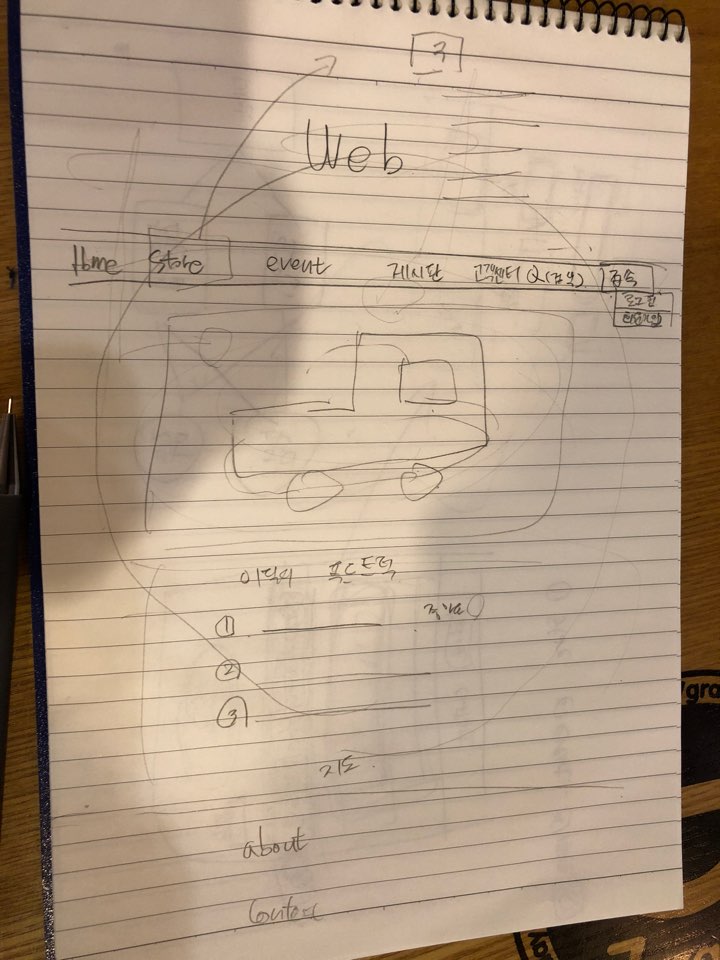 Web
Home Store event 게시판 고객센터 Q(검색) 접속
로그인
회원가입
이달의 푸드트럭
①
②
③
지도
about
Contact